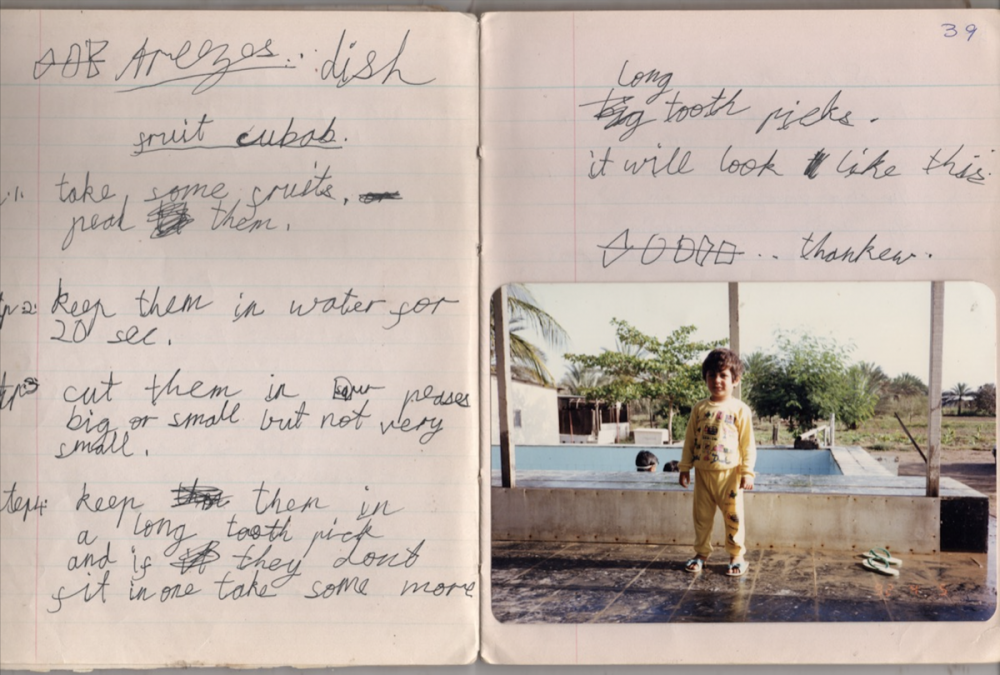 Areezos.. dish
fruit cubab.
take some fruits,
peal them.
keep them in water for
20 sec.
cut them in peases
big or small but not very
small.
step4: keep them in
a long tooth pick
and if they dont
fit in one take some more
39
long
tooth picks.
it will look like this
.. thankew.